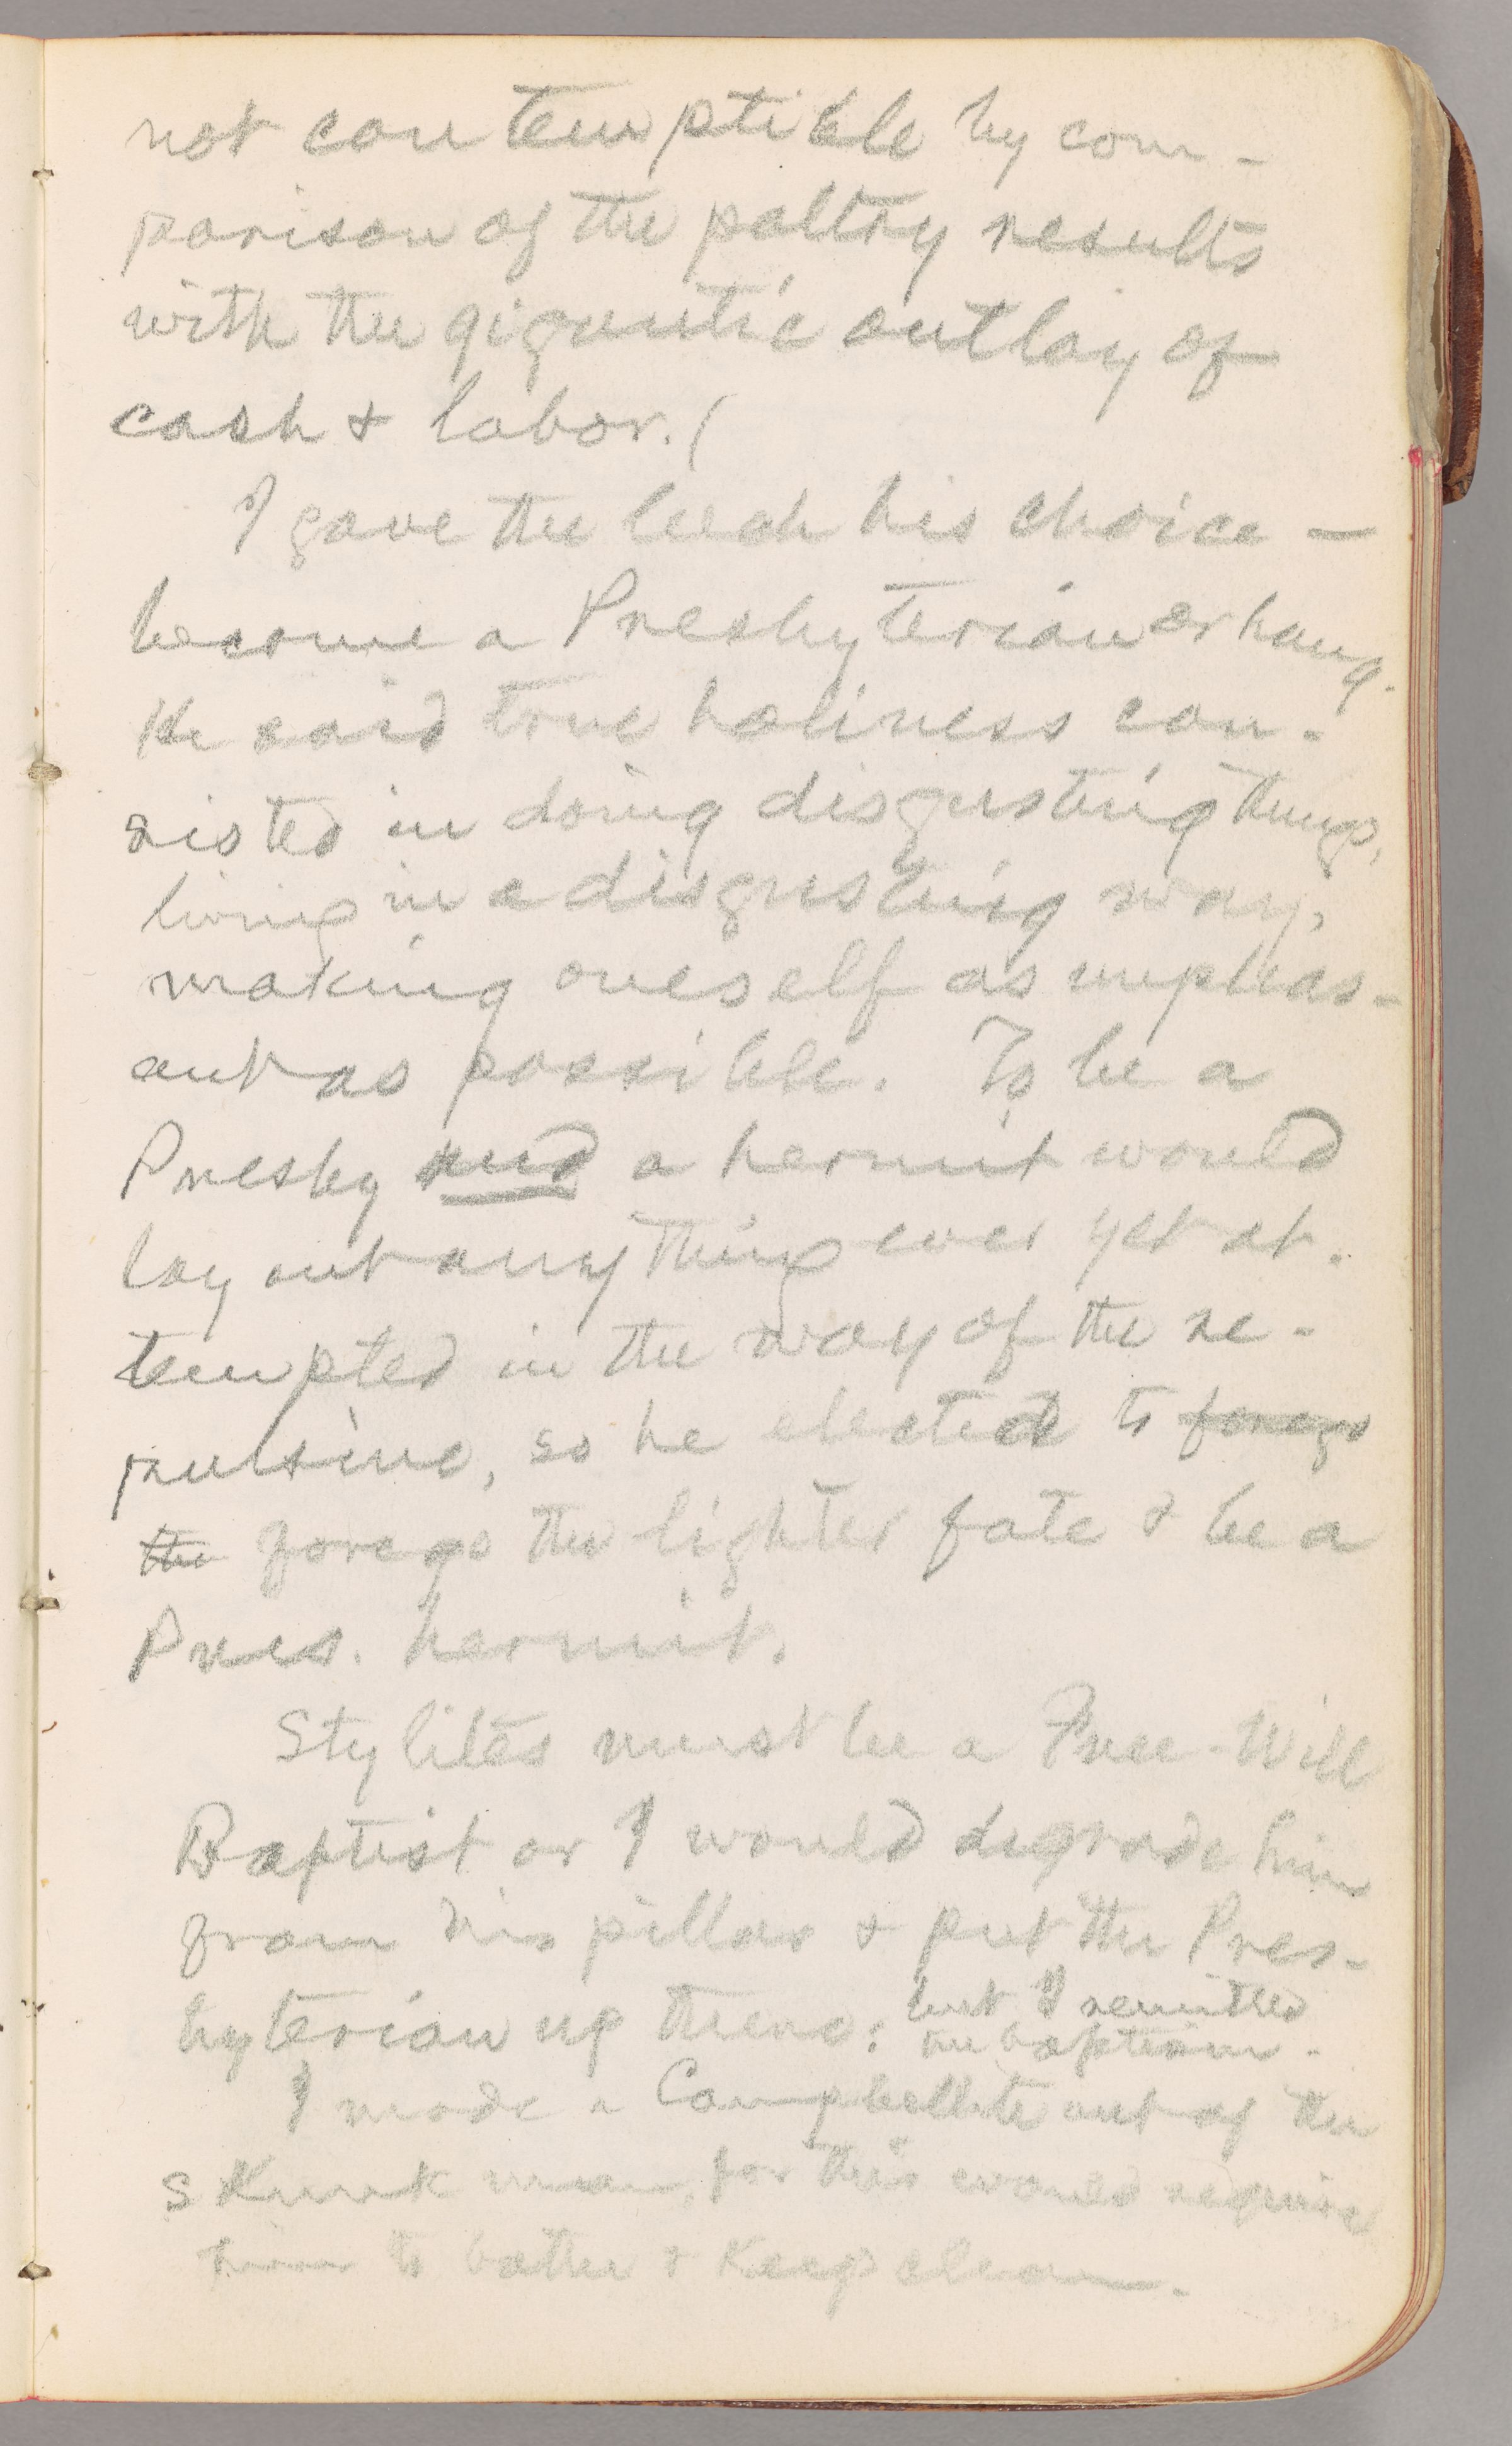 not contemptible by com-
parison of the paltry results
with the gigantic outlay of
cash & labor. (
I gave the leech his choice —
become a Presbyterian or hang.
He said true holiness con-
sisted in doing disgusting things,
living in a disgusting way,
making oneself as unpleas-
ant as possible. To be a
Presby and a hermit would
lay out anything ever yet at-
tempted in the way of the re-
pulsive, so he elected to forego
the forego the lighter fate & be a
Pres. hermit.
Stylites must be a Free-Will
Baptist or I would degrade him
from his pillar & put the Pres-
byterian up there: but I remitted
the baptism.
I made a Campbellite out of the
skunk man, for this would require
him to bathe & keep clean.